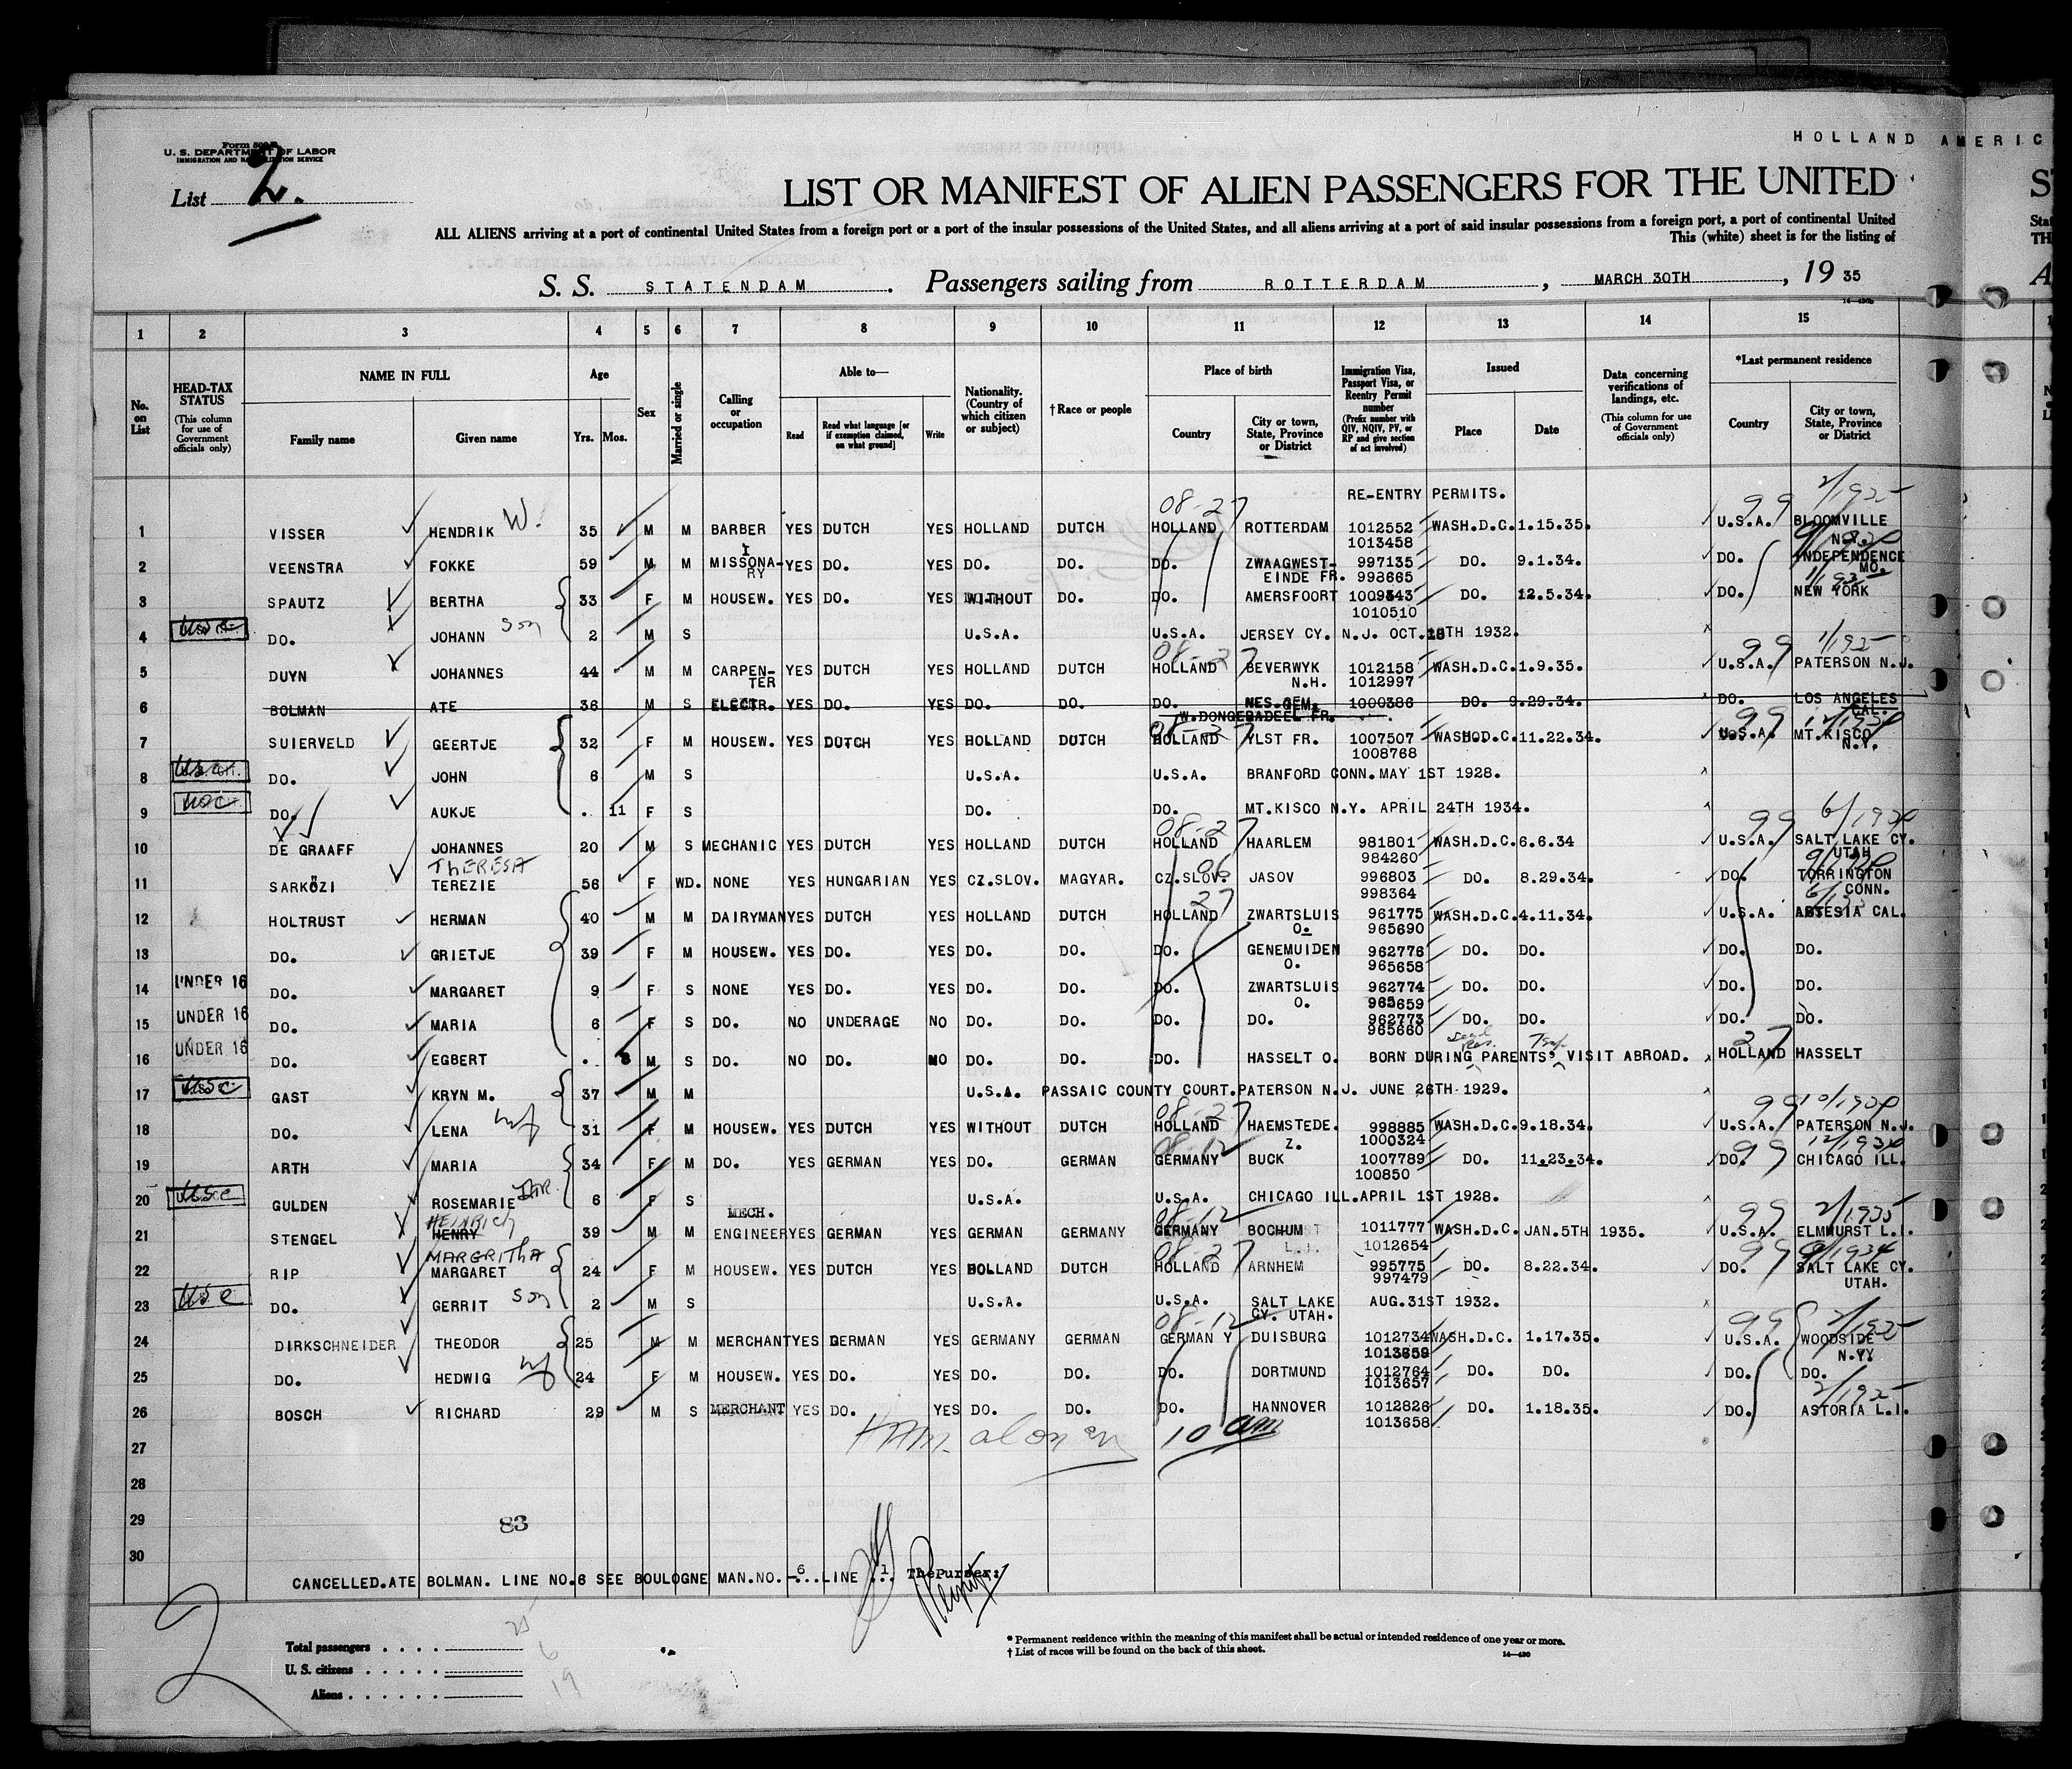 HOLLAND AMERIC
U. S. DEPARTMENT OF LABOR
IMMIGRATION AND NATURALIZATION SERVICE
List 2.
LIST OR MANIFEST OF ALIEN PASSENGERS FOR THE UNITED
ALL ALIENS arriving at a port of continental United States from a foreign port or a port of the insular possessions of the United States, and all aliens arriving at a port of said insular possessions from a foreign port, a port of continental United
This (white) sheet is for the listing of
S. S. STATENDAM. Passengers sailing from ROTTERDAM, MARCH 30TH, 19 35
1 2 3 4 5 6 7 8 9 10 11 12 13 14 15
No. on List
HEAD-TAX STATUS (This column for use of Government officials only)
NAME IN FULL Family name Given name
Age Yrs. Mos.
Sex
Married or single
Calling or occupation
Able to— Read Read what language [or if exemption claimed, on what ground] Write
Nationality. (Country of which citizen or subject)
†Race or people
Place of birth Country City or town, State, Province or District
Immigration Visa, Passport Visa, or Reentry Permit number (Prefix number with QIV, NQIV, PV, or RP and give section of act involved)
Issued Place Date
Data concerning verifications of landings, etc. (This column for use of Government officials only)
*Last permanent residence Country City or town, State, Province or District
RE-ENTRY PERMITS.
08-27 99 2/1935
1 VISSER HENDRIK W. 35 M M BARBER YES DUTCH YES HOLLAND DUTCH HOLLAND ROTTERDAM 1012552 WASH.D.C. 1.15.35. U.S.A. BLOOMVILLE
1013458 N.Y.
2 VEENSTRA FOKKE 59 M M MISSONA- YES DO. YES DO. DO. DO. ZWAAGWEST- 997135 DO. 9.1.34. DO. INDEPENDENCE
RY EINDE FR. 998665 MO.
3 SPAUTZ BERTHA 33 F M HOUSEW. YES DO. YES WITHOUT DO. DO. AMERSFOORT 1009343 DO. 12.5.34. DO. NEW YORK
1010510
4 DO. JOHANN son 2 M S U.S.A. U.S.A. JERSEY CY. N.J. OCT. TH 1932.
08-27 99 1/1935
5 DUYN JOHANNES 44 M M CARPEN- YES DUTCH YES HOLLAND DUTCH HOLLAND BEVERWYK 1012158 WASH.D.C. 1.9.35. U.S.A. PATERSON N.J.
TER N.H. 1012997
6 BOLMAN ATE 36 M S ELECTR. YES DO. YES DO. DO. DO. NES.GEM. 1000386 DO. 9.29.34. DO. LOS ANGELES
W.DONGERADEEL FR. CAL.
7 SUIERVELD GEERTJE 32 F M HOUSEW. YES DUTCH YES HOLLAND DUTCH HOLLAND YLST FR. 1007507 WASH.D.C. 11.22.34. U.S.A. MT.KISCO
1008768 N.Y.
8 DO. JOHN 6 M S U.S.A. U.S.A. BRANFORD CONN. MAY 1ST 1928.
9 USC DO. AUKJE . 11 F S DO. DO. MT.KISCO N.Y. APRIL 24TH 1934.
08-27 99
10 DE GRAAFF JOHANNES 20 M S MECHANIC YES DUTCH YES HOLLAND DUTCH HOLLAND HAARLEM 981801 WASH.D.C. 6.6.34 U.S.A. SALT LAKE CY.
THERESA 984260 UTAH
11 SARKÖZI TEREZIE 56 F WD. NONE YES HUNGARIAN YES CZ.SLOV. MAGYAR. CZ.SLOV. JASOV 996803 DO. 8.29.34. DO. TORRINGTON
998364 CONN.
12 HOLTRUST HERMAN 40 M M DAIRYMAN YES DUTCH YES HOLLAND DUTCH HOLLAND ZWARTSLUIS 961775 WASH.D.C. 4.11.34. U.S.A. ARTESIA CAL.
O. 965690
13 DO. GRIETJE 39 F M HOUSEW. YES DO. YES DO. DO. DO. GENEMUIDEN 962776 DO. DO. DO. DO.
O. 965658
14 UNDER 16 DO. MARGARET 9 F S NONE YES DO. YES DO. DO. DO. ZWARTSLUIS 962774 DO. DO. DO. DO.
O. 965659
15 UNDER 16 DO. MARIA 6 F S DO. NO UNDERAGE NO DO. DO. DO. DO. 962773 DO. DO. DO. DO.
965660
16 UNDER 16 DO. EGBERT . 8 M S DO. NO DO. NO DO. DO. DO. HASSELT O. BORN DURING PARENTS' VISIT ABROAD. HOLLAND HASSELT
17 USC GAST KRYN M. 37 M M U.S.A. PASSAIC COUNTY COURT. PATERSON N.J. JUNE 26TH 1929.
08-27 99 10/1934
18 DO. LENA wf 31 F M HOUSEW. YES DUTCH YES WITHOUT DUTCH HOLLAND HAEMSTEDE. 998885 WASH.D.C. 9.18.34. U.S.A. PATERSON N.J.
08-12 Z. 1000324 99 12/1934
19 ARTH MARIA 34 F M DO. YES GERMAN YES DO. GERMAN GERMANY BUCK 1007789 DO. 11.23.34. DO. CHICAGO ILL.
100850
20 GULDEN ROSEMARIE 6 F S U.S.A. U.S.A. CHICAGO ILL. APRIL 1ST 1928.
HEINRICH MECH. 08-12 99 2/1935
21 STENGEL HENRY 39 M M ENGINEER YES GERMAN YES GERMAN GERMANY GERMANY BOCHUM 1011777 WASH.D.C. JAN.5TH 1935. U.S.A. ELMHURST L.I.
MARGRITHA 08-27 L.I. 1012654 99 9/1934
22 RIP MARGARET 24 F M HOUSEW. YES DUTCH YES HOLLAND DUTCH HOLLAND ARNHEM 995775 DO. 8.22.34. DO. SALT LAKE CY.
997479 UTAH.
23 USC DO. GERRIT son 2 M S U.S.A. U.S.A. SALT LAKE AUG.31ST 1932.
08-12 CY. UTAH. 99
24 DIRKSCHNEIDER THEODOR 25 M M MERCHANT YES GERMAN YES GERMANY GERMAN GERMAN Y DUISBURG 1012734 WASH.D.C. 1.17.35. U.S.A. WOODSIDE
N.Y.
25 DO. HEDWIG wf 24 F M HOUSEW. YES DO. YES DO. DO. DO. DORTMUND 1012764 DO. DO. DO. DO.
1013657
26 BOSCH RICHARD 29 M S MERCHANT YES DO. YES DO. DO. DO. HANNOVER 1012826 DO. 1.18.35. DO. ASTORIA L.I.
1013658
27 10 am
28
29 83
30
CANCELLED. ATE BOLMAN. LINE NO.6 SEE BOULOGNE MAN.NO. 6 LINE 1 The Purser:
2
Total passengers 25
U. S. citizens 6
Aliens 19
* Permanent residence within the meaning of this manifest shall be actual or intended residence of one year or more.
† List of races will be found on the back of this sheet.